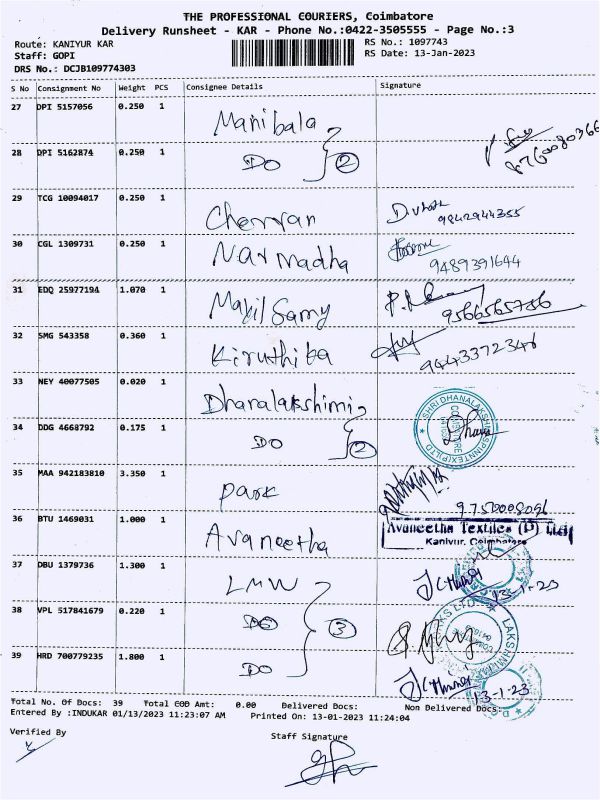 THE PROFESSIONAL COURIERS, Coimbatore
Delivery Runsheet - KAR - Phone No.:0422-3505555 - Page No.:3
Route: KANIYUR KAR
RS No.: 1097743
Staff: GOPI
RS Date: 13-Jan-2023
DRS No.: DCJB109774303
S No Consignment No Weight PCS Consignee Details Signature
27 DPI 5157056 0.250 1 Manibala
28 DPI 5162874 0.250 1 DO 2
29 TCG 10094017 0.250 1
9842944355
30 CGL 1309731 0.250 1 Narmadha
9489391644
31 EDQ 25977194 1.070 1 Mayil Samy
9566565786
32 SMG 543358 0.360 1 Kiruthika
9443372346
33 NEY 40077505 0.020 1 Dhanalakshimi
34 DDG 4668792 0.175 1 DO 2
SHRI DHANALAKSHMI SPINNTEX (P) LTD
35 MAA 942183810 3.350 1 park
9750008096
36 BTU 1469031 1.000 1 Avaneetha
Avaneetha Textiles (P) Ltd
Kaniyur, Coimbatore
37 DBU 1379736 1.300 1 LMW
13-1-23
38 VPL 517841679 0.220 1 DO 3
39 HRD 700779235 1.800 1 DO
13-1-23
Total No. Of Docs: 39 Total COD Amt: 0.00 Delivered Docs: Non Delivered Docs:
Entered By :INDUKAR 01/13/2023 11:23:07 AM Printed On: 13-01-2023 11:24:04
Verified By
Staff Signature